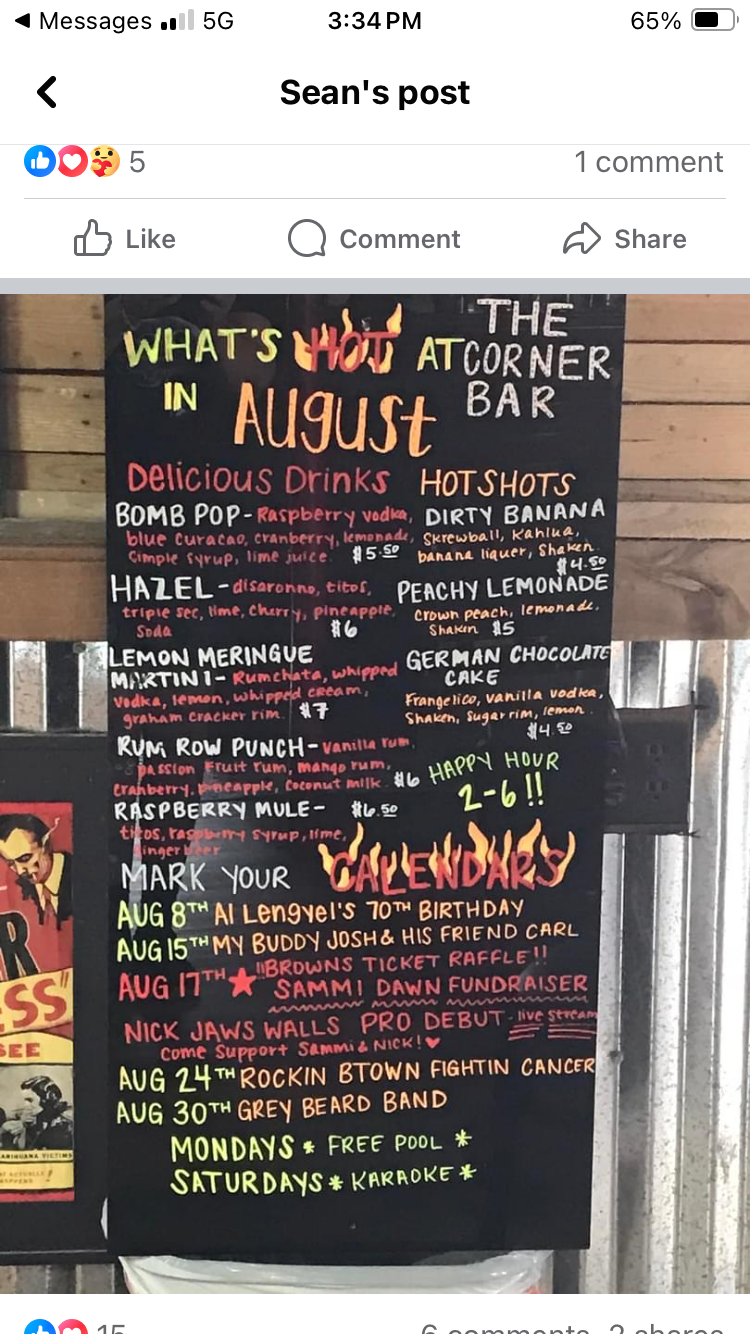 Messages 5G 3:34 PM 65%
Sean's post
5 1 comment
Like Comment Share
WHAT'S HOT AT THE CORNER BAR
IN AUGUST
Delicious Drinks
BOMB POP - Raspberry vodka,
blue curacao, cranberry, lemonade,
Simple syrup, lime juice. $5.50
HAZEL - disaronno, titos,
triple sec, lime, cherry, pineapple,
Soda $6
LEMON MERINGUE
MARTINI - Rumchata, whipped
vodka, lemon, whipped cream,
graham cracker rim. $7
RUM ROW PUNCH - vanilla rum,
passion Fruit rum, mango rum,
cranberry, pineapple, coconut milk. $6
RASPBERRY MULE - $6.50
titos, raspberry syrup, lime,
ginger beer
HOT SHOTS
DIRTY BANANA
Skrewball, Kahlua,
banana liquer, Shaken.
$4.50
PEACHY LEMONADE
Crown peach, lemonade.
Shaken $5
GERMAN CHOCOLATE
CAKE
Frangelico, vanilla vodka,
Shaken, Sugar rim, lemon.
$4.50
HAPPY HOUR
2-6!!
MARK YOUR CALENDARS
AUG 8TH Al Lengyel's 70TH BIRTHDAY
AUG 15TH MY BUDDY JOSH & HIS FRIEND CARL
AUG 17TH ★ "BROWNS TICKET RAFFLE!!
SAMMI DAWN FUNDRAISER
NICK JAWS WALLS PRO DEBUT - live stream
Come Support Sammi & NICK! ♥
AUG 24TH ROCKIN BTOWN FIGHTIN CANCER
AUG 30TH GREY BEARD BAND
MONDAYS * FREE POOL *
SATURDAYS * KARAOKE *
R
SS"
SEE
MARIHUANA VICTIMS
15 6 comments 2 shares